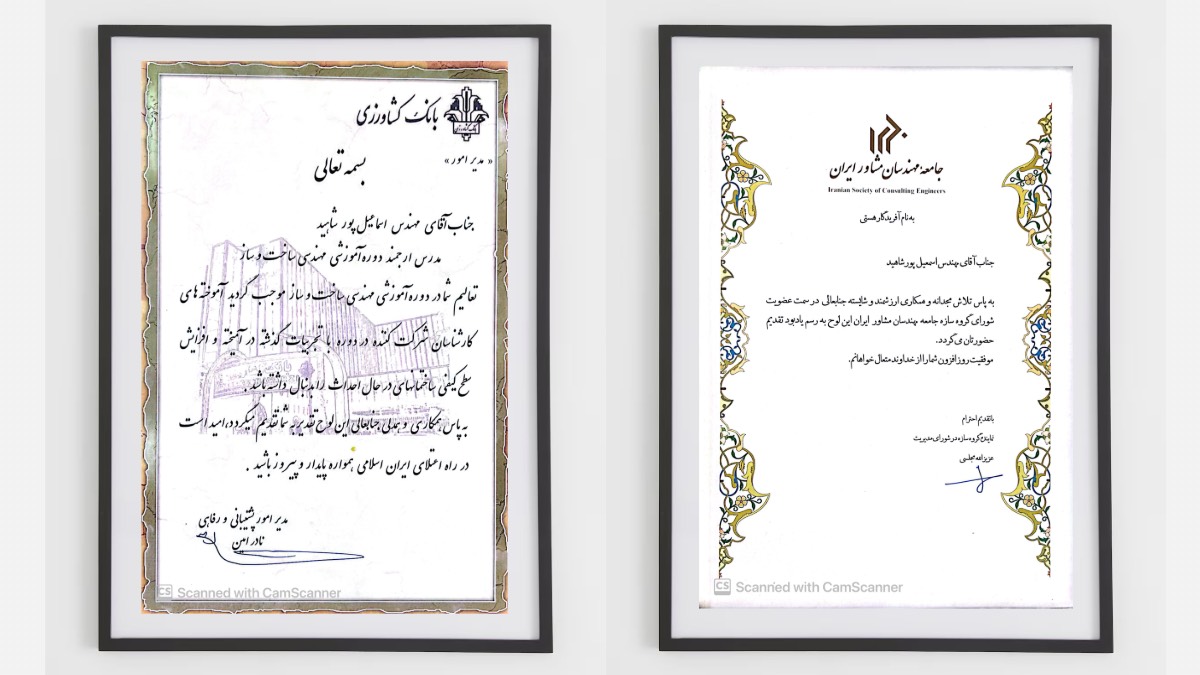 بانک کشاورزی
بانک کشاورزی
« مدیر امور »
بسمه تعالی
جناب آقای مهندس اسماعیل پور شاهید
مدرس ارجمند دوره آموزشی مهندسی ساخت و ساز
تعالیم شما در دوره آموزشی مهندسی ساخت و ساز موجب گردید آموخته های
کارشناسان شرکت کننده در دوره با تجربیات گذشته در آمیخته و افزایش
سطح کیفی ساختمانهای در حال احداث را بدنبال داشته باشد .
به پاس همکاری و همدلی جنابعالی این لوح تقدیر به شما تقدیم میگردد، امید است
در راه اعتلای ایران اسلامی همواره پایدار و پیروز باشید .
مدیر امور پشتیبانی و رفاهی
نادر امین
CS Scanned with CamScanner
جامعه مهندسان مشاور ایران
Iranian Society of Consulting Engineers
به نام آفریدگار هستی
جناب آقای مهندس اسمعیل پور شاهید
به پاس تلاش مجدانه و همکاری ارزشمند و شایسته جنابعالی در سمت عضویت
شورای گروه سازه جامعه مهندسان مشاور ایران این لوح به رسم یادبود تقدیم
حضورتان می گردد.
موفقیت روز افزون شما را از خداوند متعال خواهانم.
با تقدیم احترام
نماینده گروه سازه در شورای مدیریت
عزیزاله مجلسی
CS Scanned with CamScanner